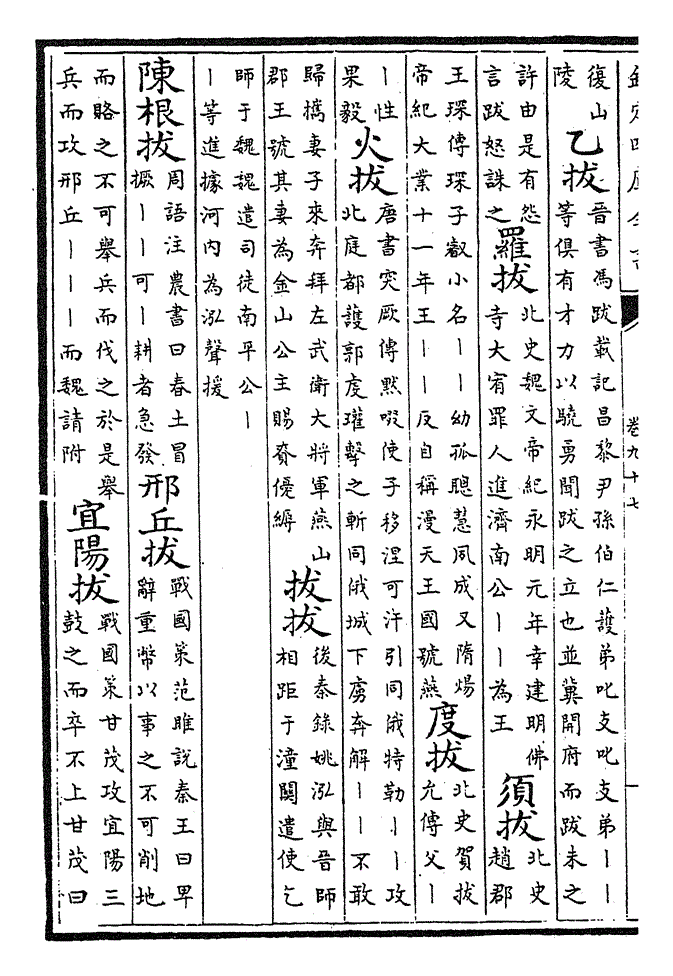 欽定四庫全書
卷九十七
一
復山
陵
乙拔
晉書馮跋載記昌黎尹孫伯仁護弟叱支叱支弟丨丨
等俱有才力以驍勇聞跋之立也並冀開府而跋未之
許由是有怨
言跋怒誅之
羅拔
北史魏文帝紀永明元年幸建明佛
寺大宥罪人進濟南公丨丨為王
須拔
北史
趙郡
王琛傳琛子叡小名丨丨幼孤聰慧夙成又隋煬
帝紀大業十一年王丨丨反自稱漫天王國號燕
度拔
北史賀拔
允傳父丨
丨性
果毅
火拔
唐書突厥傳黙啜使子移涅可汗引同俄特勒丨丨攻
北庭都護郭虔瓘擊之斬同俄城下虜奔解丨丨不敢
歸攜妻子來奔拜左武衛大將軍燕山
郡王號其妻為金山公主賜賚優縟
拔拔
後秦錄姚泓與晉師
相距于潼關遣使乞
師于魏魏遣司徒南平公丨
丨等進據河内為泓聲援
陳根拔
周語注農書曰春土冒
橛丨丨可丨耕者急發
邢丘拔
戰國策范雎說秦王曰卑
辭重幣以事之不可削地
而賂之不可舉兵而伐之於是舉
兵而攻邢丘丨丨丨而魏請附
宜陽拔
戰國策甘茂攻宜陽三
鼓之而卒不上甘茂曰